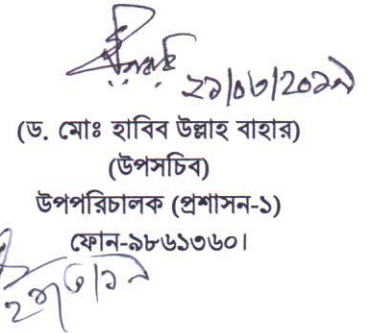 (ড. মোঃ হাবিব উল্লাহ বাহার)
(উপসচিব)
উপপরিচালক (প্রশাসন-১)
ফোন-৯৮৬১৩৬০।